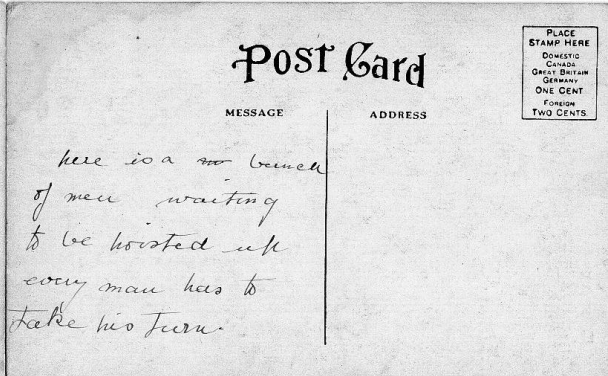 Post Card
PLACE
STAMP HERE
DOMESTIC
CANADA
GREAT BRITAIN
GERMANY
ONE CENT
FOREIGN
TWO CENTS.
MESSAGE
ADDRESS
here is a bunch
of men waiting
to be hoisted up
every man has to
take his turn.